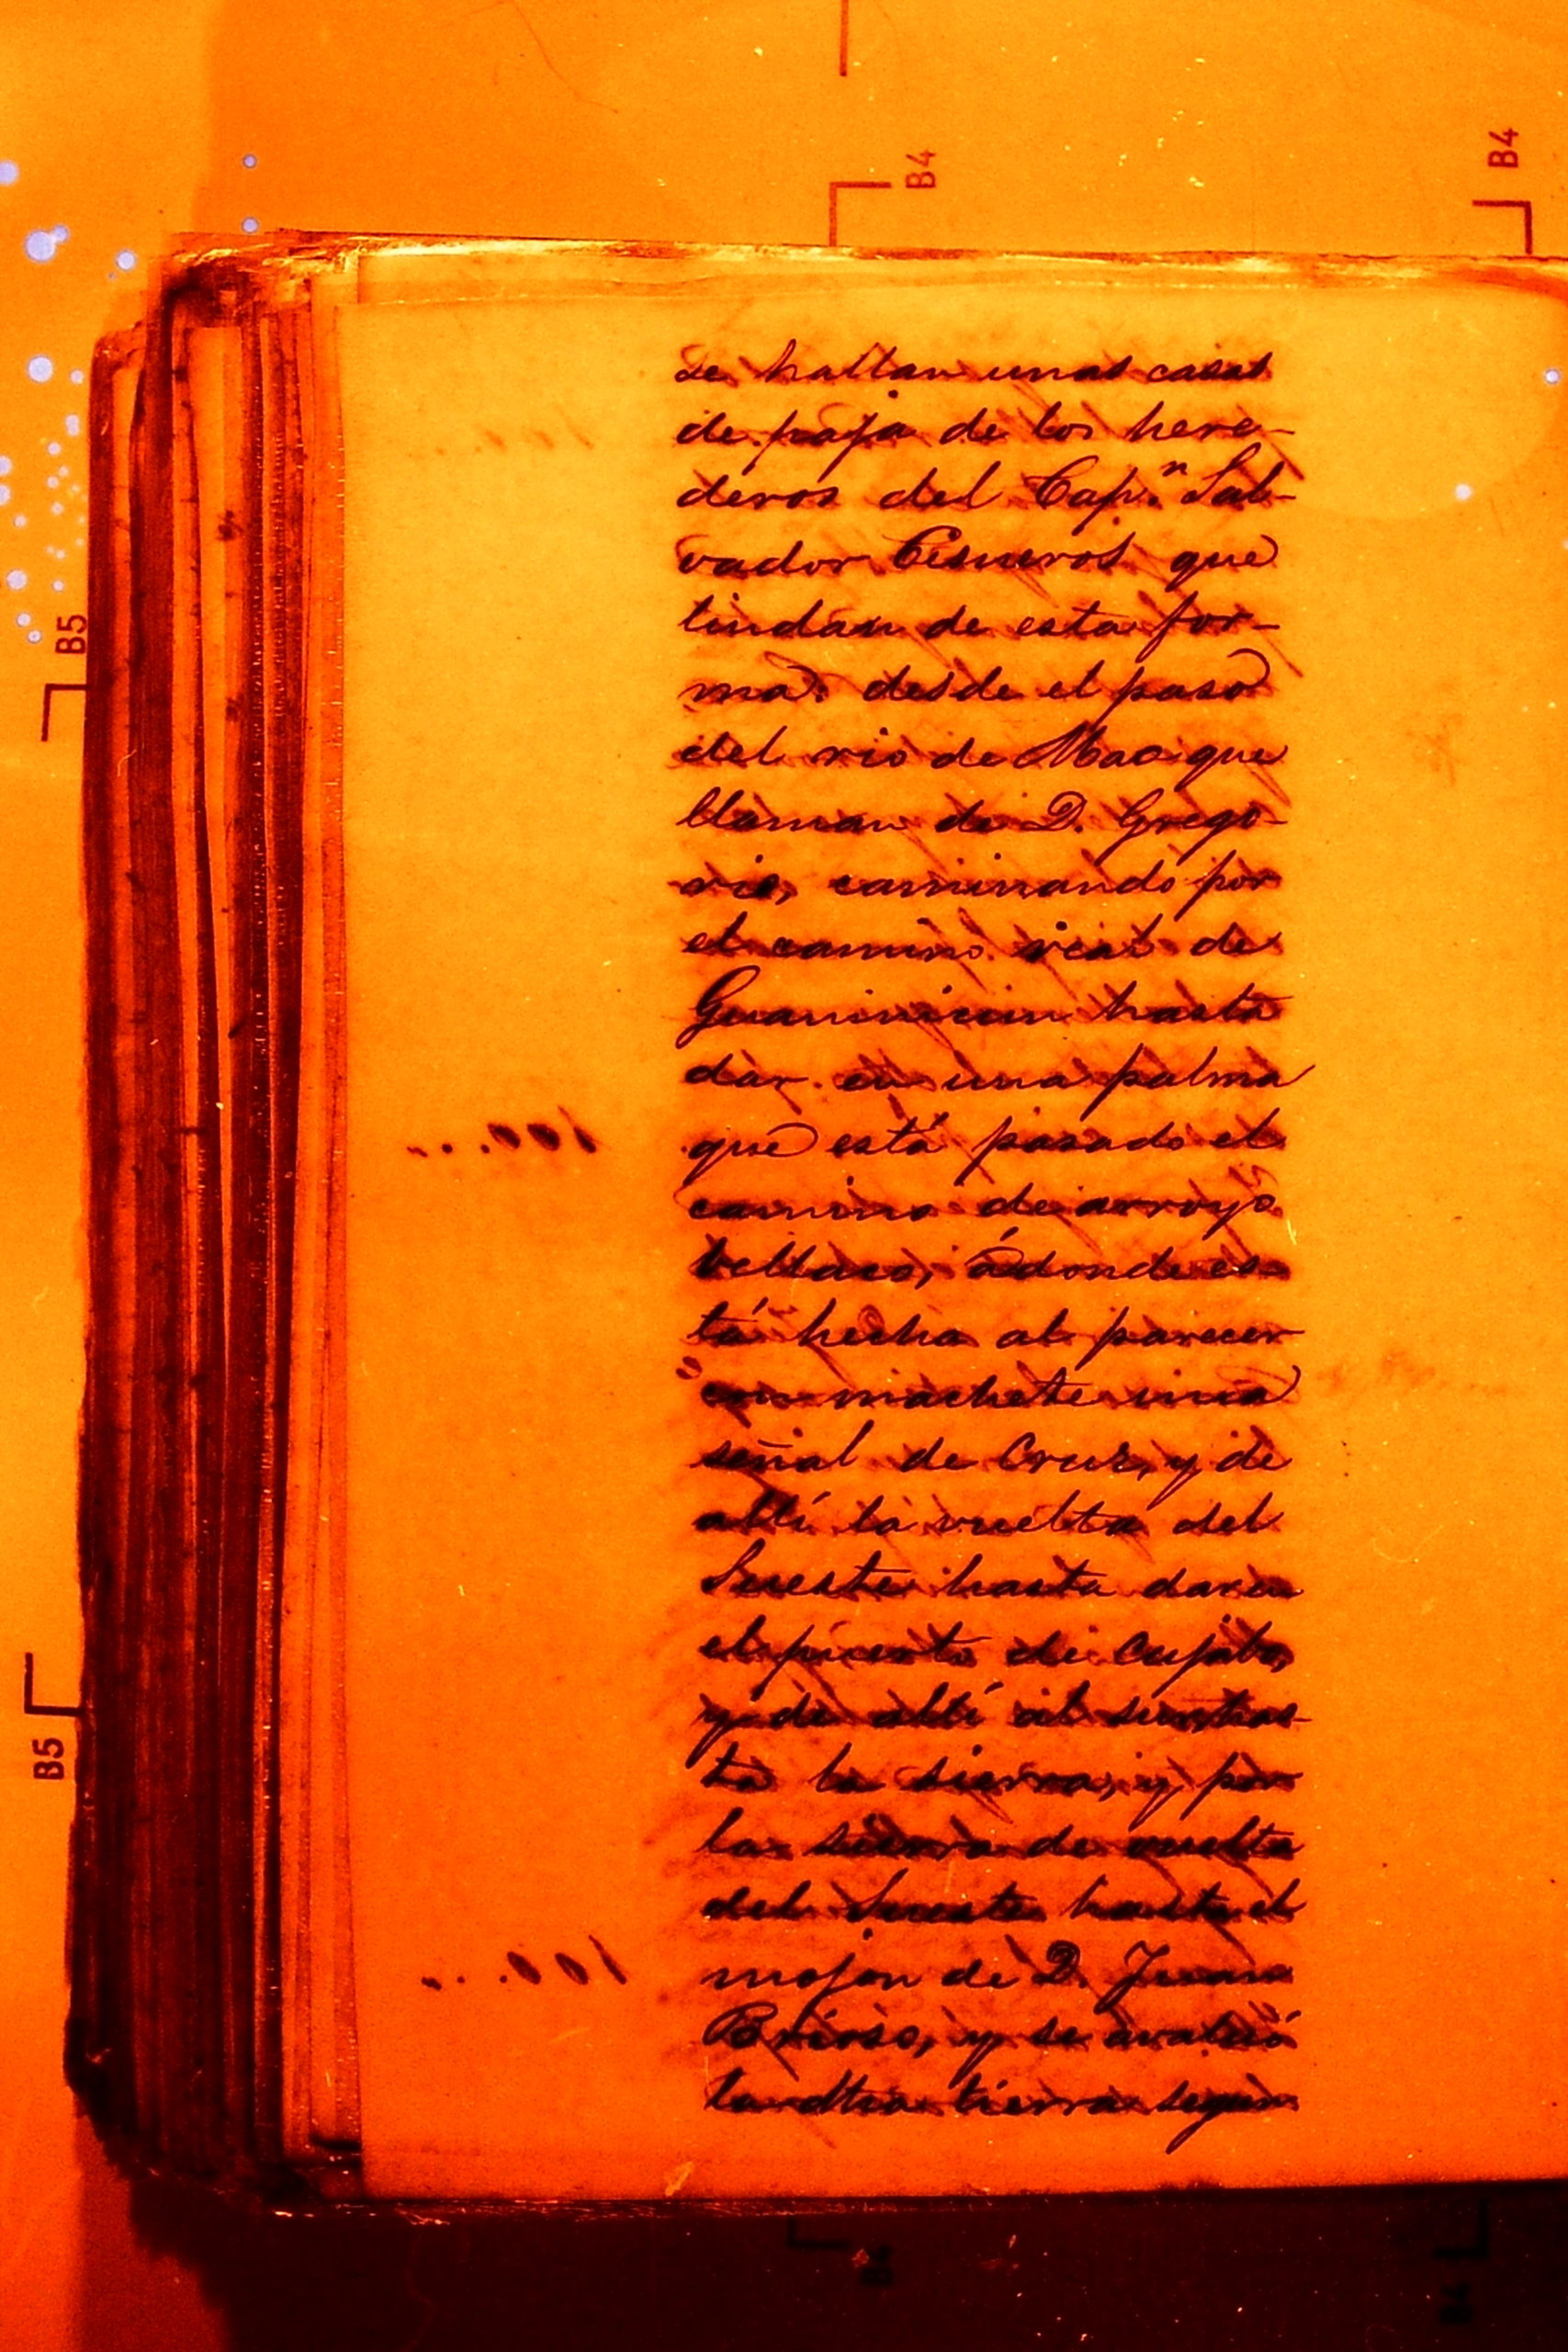 B4
B4
se hallan unas casas
de paja de los here-
deros del Cap.n Sal-
vador Cisneros que
lindan de esta for-
ma: desde el paso
del rio de Mao que
llaman de D. Grego-
rio, caminando por
el camino real de
hasta
dar en una palma
que está pasado el
camino de arroyo
bellaco, ádonde es-
tá hecha al parecer
con machete una
señal de Cruz, y de
allí la vuelta del
Sueste hasta dar en
el puerto de
y de allí al sur has-
ta la sierra, y por
la sierra de vuelta
del Sueste hasta el
mojon de D. Juan
Brioso, y se avaluó
la dha tierra segun
B5
B5